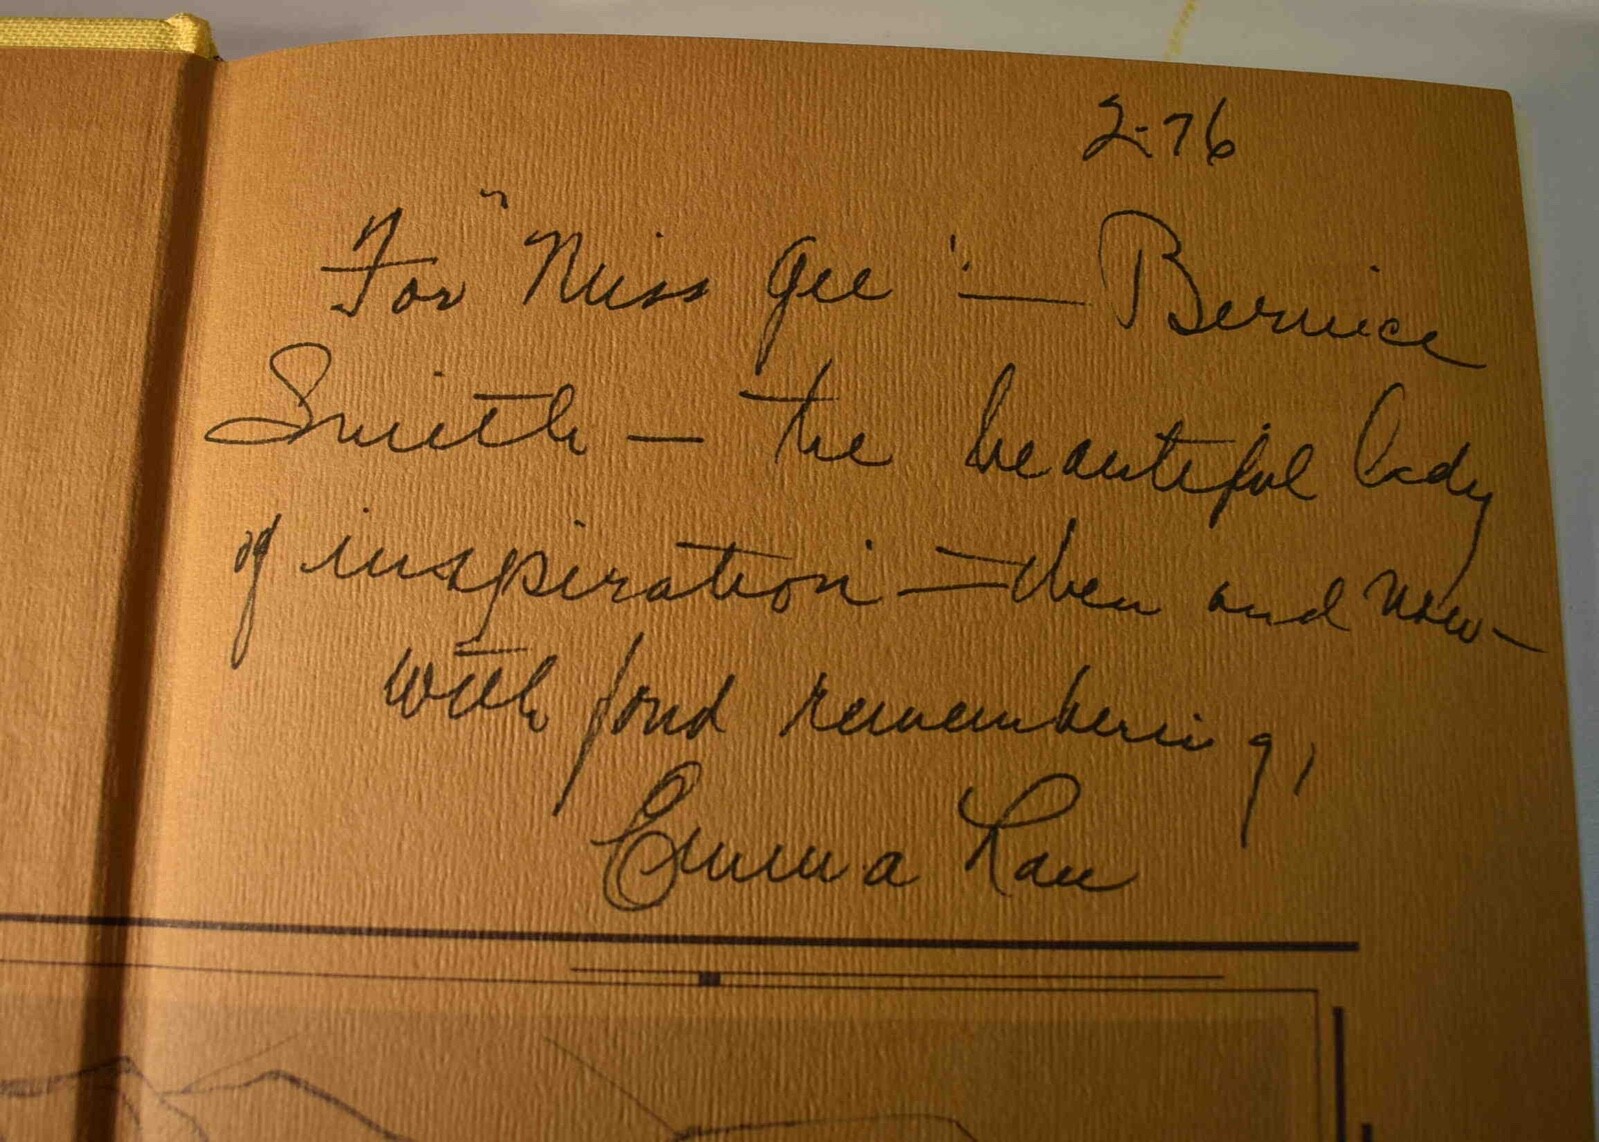 2-76
For "Miss Gee": — Bernice
Smith — the beautiful lady
of inspiration — then and now —
with fond remembering,
Emma Lou